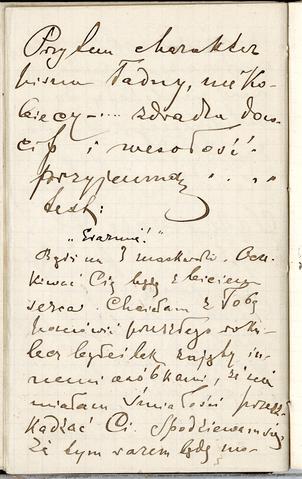 Przytem charakter
pisma ładny, nie ko-
biecy –... zdradza dow-
cip i wesołość
przyjemną . „ „
test:
"Szanuj!"
Bądź na maskarade. Ocze-
kiwać Cię będę z biciem
serca. Chciałam z Tobą
pomówić przeszłego roku
lecz byłeś tak zajęty in-
nemi osóbkami, że nie
miałam śmiałości przesz-
kadzać Ci. Spodziewam się
że tym razem będę